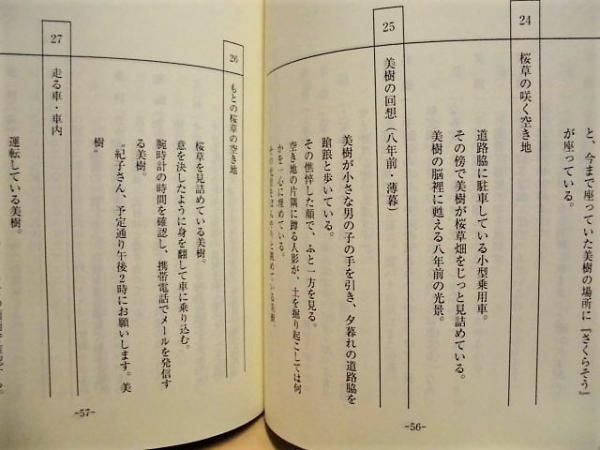 と、今まで座っていた美樹の場所に『さくらそう』
が座っている。
24 桜草の咲く空き地
道路脇に駐車している小型乗用車。
その傍で美樹が桜草畑をじっと見詰めている。
美樹の脳裡に甦える八年前の光景。
25 美樹の回想（八年前・薄暮）
美樹が小さな男の子の手を引き、夕暮れの道路脇を
蹌踉と歩いている。
その憔悴した顔で、ふと一方を見る。
空き地の片隅に蹲る人影が、土を掘り起こしては何
かを一心に埋めている。
~56~
26 もとの桜草の空き地
桜草を見詰めている美樹。
意を決したように身を翻して車に乗り込む。
腕時計の時間を確認し、携帯電話でメールを発信す
る美樹。
〝紀子さん、予定通り午後2時にお願いします。美
樹〟
27 走る車・車内
運転している美樹。
~57~